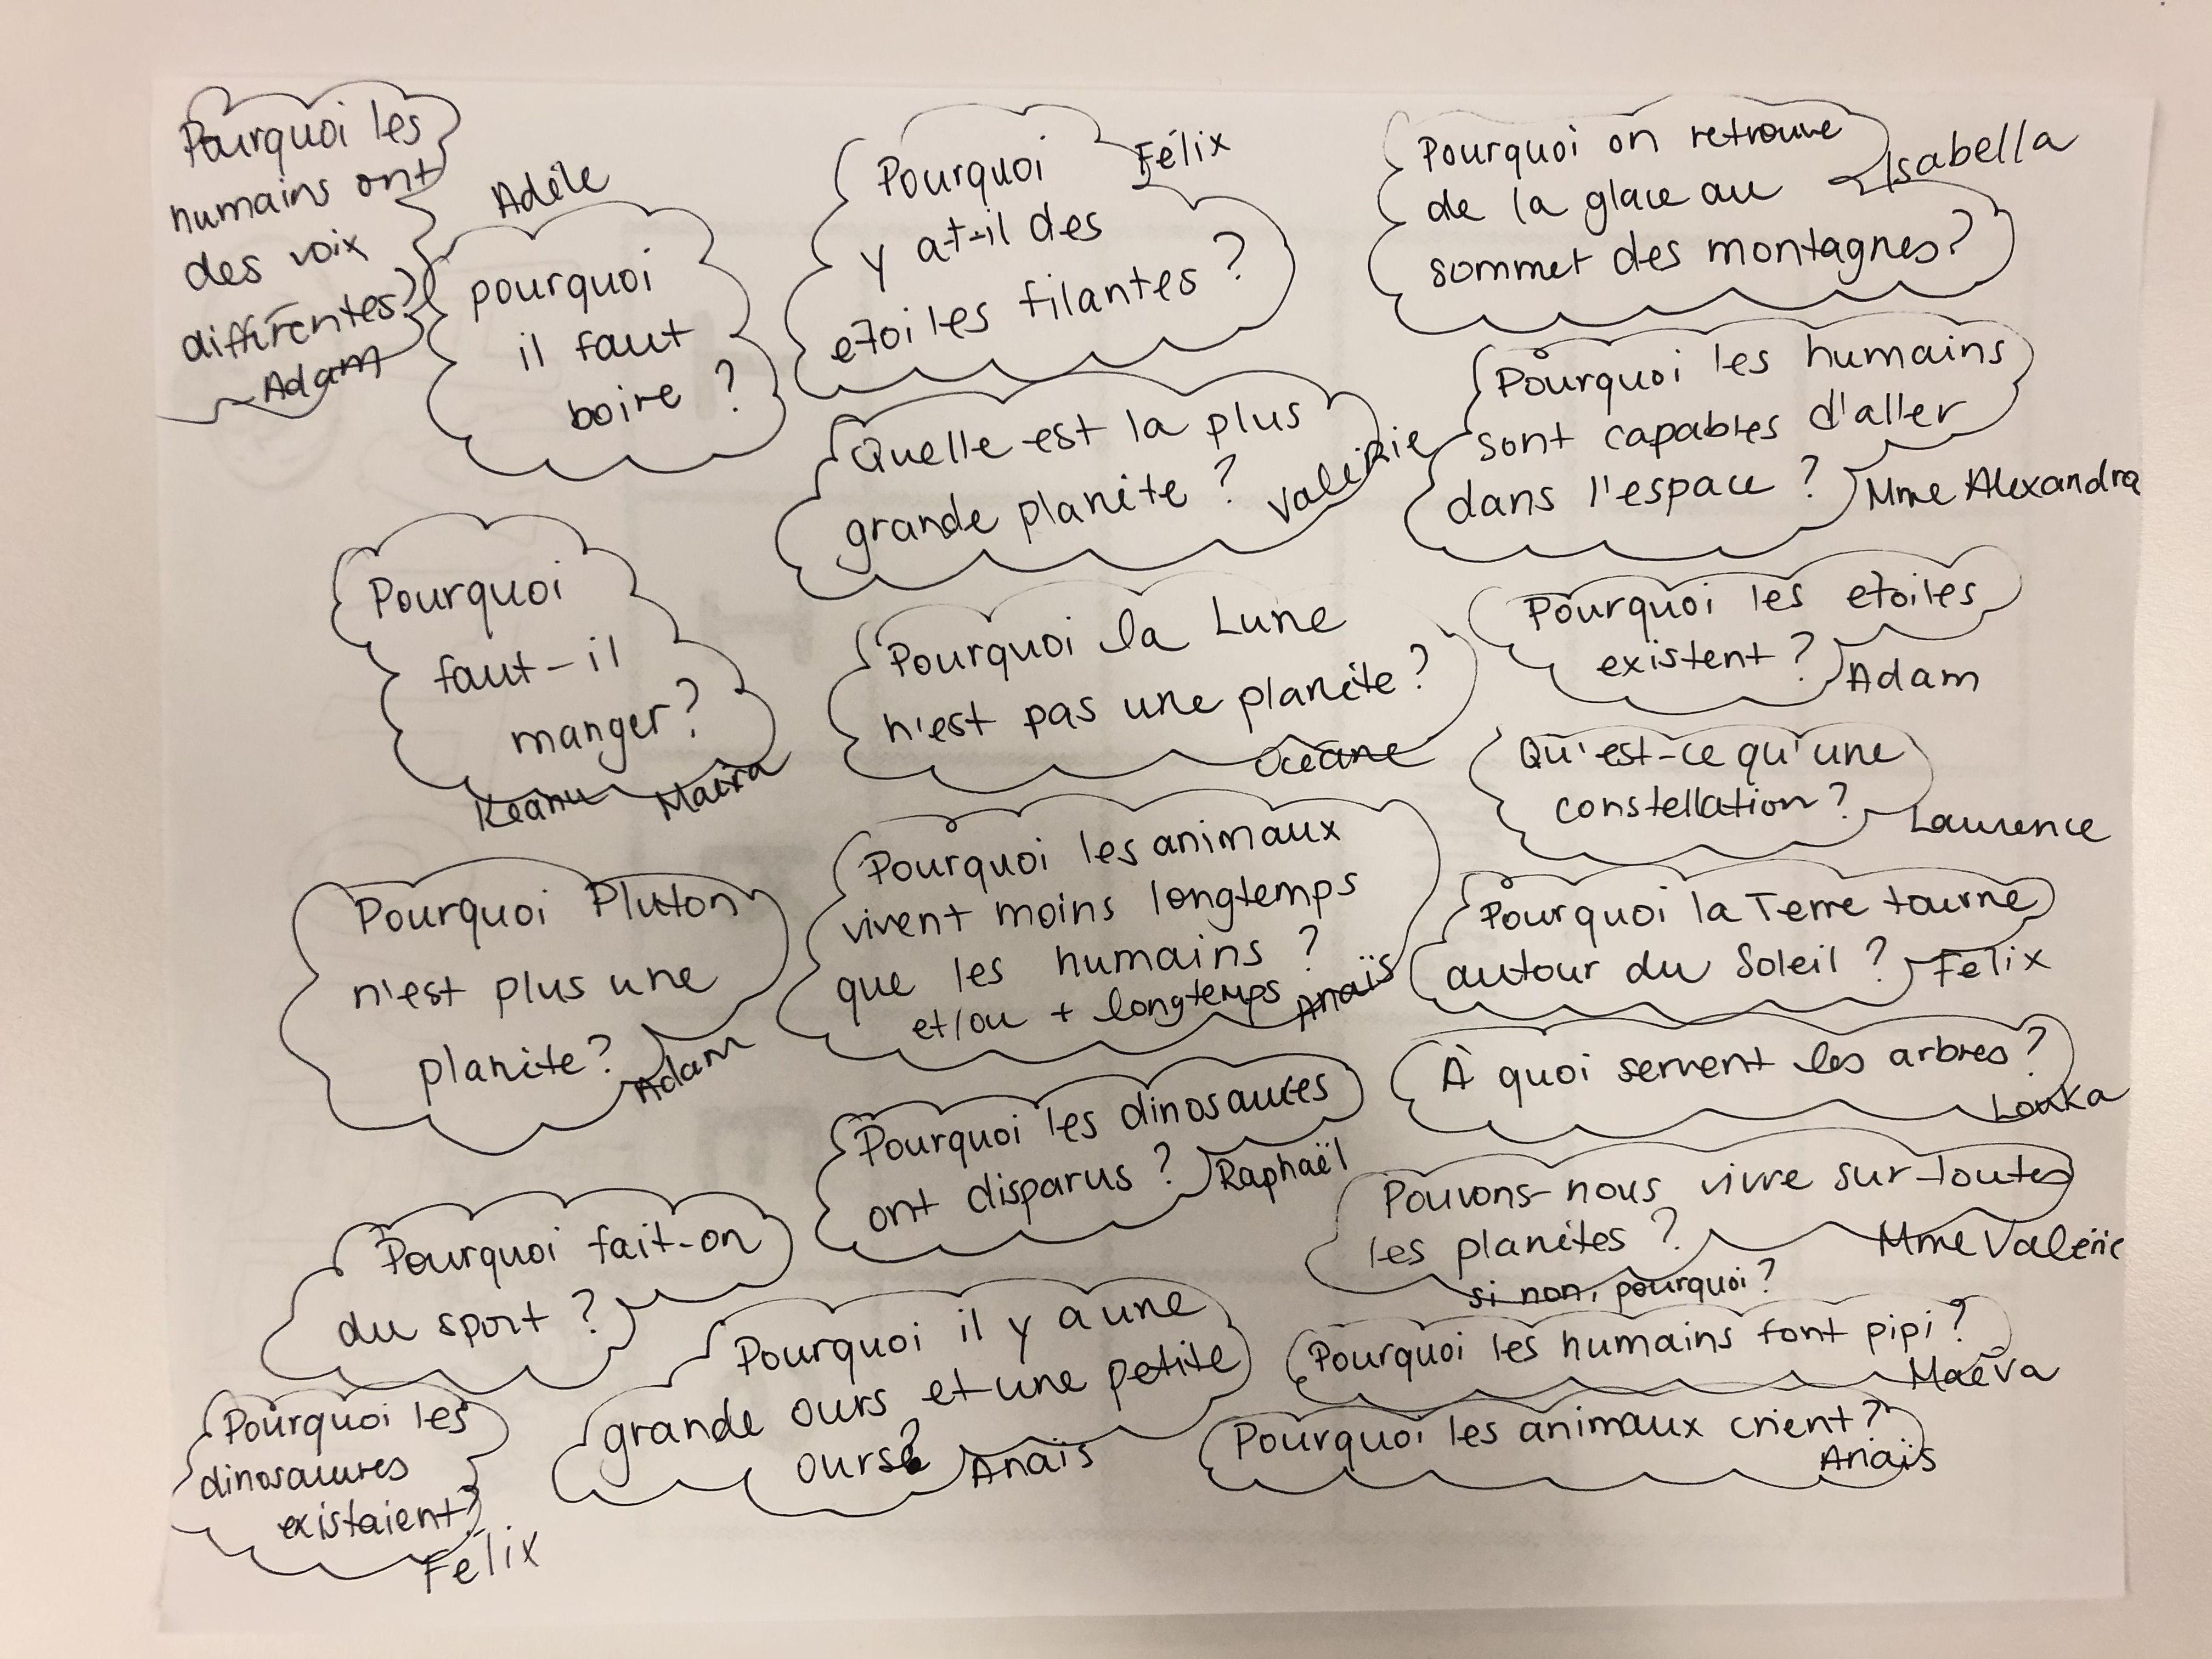 Pourquoi les
humains ont
des voix
différentes?
Adam
Adèle
pourquoi
il faut
boire ?
Pourquoi
y a-t-il des
etoiles filantes ?
Félix
Pourquoi on retrouve
de la glace au
sommet des montagnes?
Isabella
Quelle est la plus
grande planète ?
Valérie
Pourquoi les humains
sont capables d'aller
dans l'espace ?
Mme Alexandra
Pourquoi
faut-il
manger?
Keanu Maéva
Pourquoi la Lune
n'est pas une planète?
Océane
Pourquoi les etoiles
existent ?
Adam
Qu'est-ce qu'une
constellation ?
Laurence
Pourquoi Pluton
n'est plus une
planète?
Adam
Pourquoi les animaux
vivent moins longtemps
que les humains ?
et/ou + longtemps
Anaïs
Pourquoi la Terre tourne
autour du Soleil ?
Félix
À quoi servent les arbres?
Louka
Pourquoi les dinosaures
ont disparus ?
Raphaël
Pouvons-nous vivre sur toutes
les planètes ?
si non, pourquoi ?
Mme Valérie
Pourquoi fait-on
du sport ?
Pourquoi il y a une
grande ours et une petite
ourse?
Anaïs
Pourquoi les humains font pipi ?
Maéva
Pourquoi les animaux crient ?
Anaïs
Pourquoi les
dinosaures
existaient?
Félix